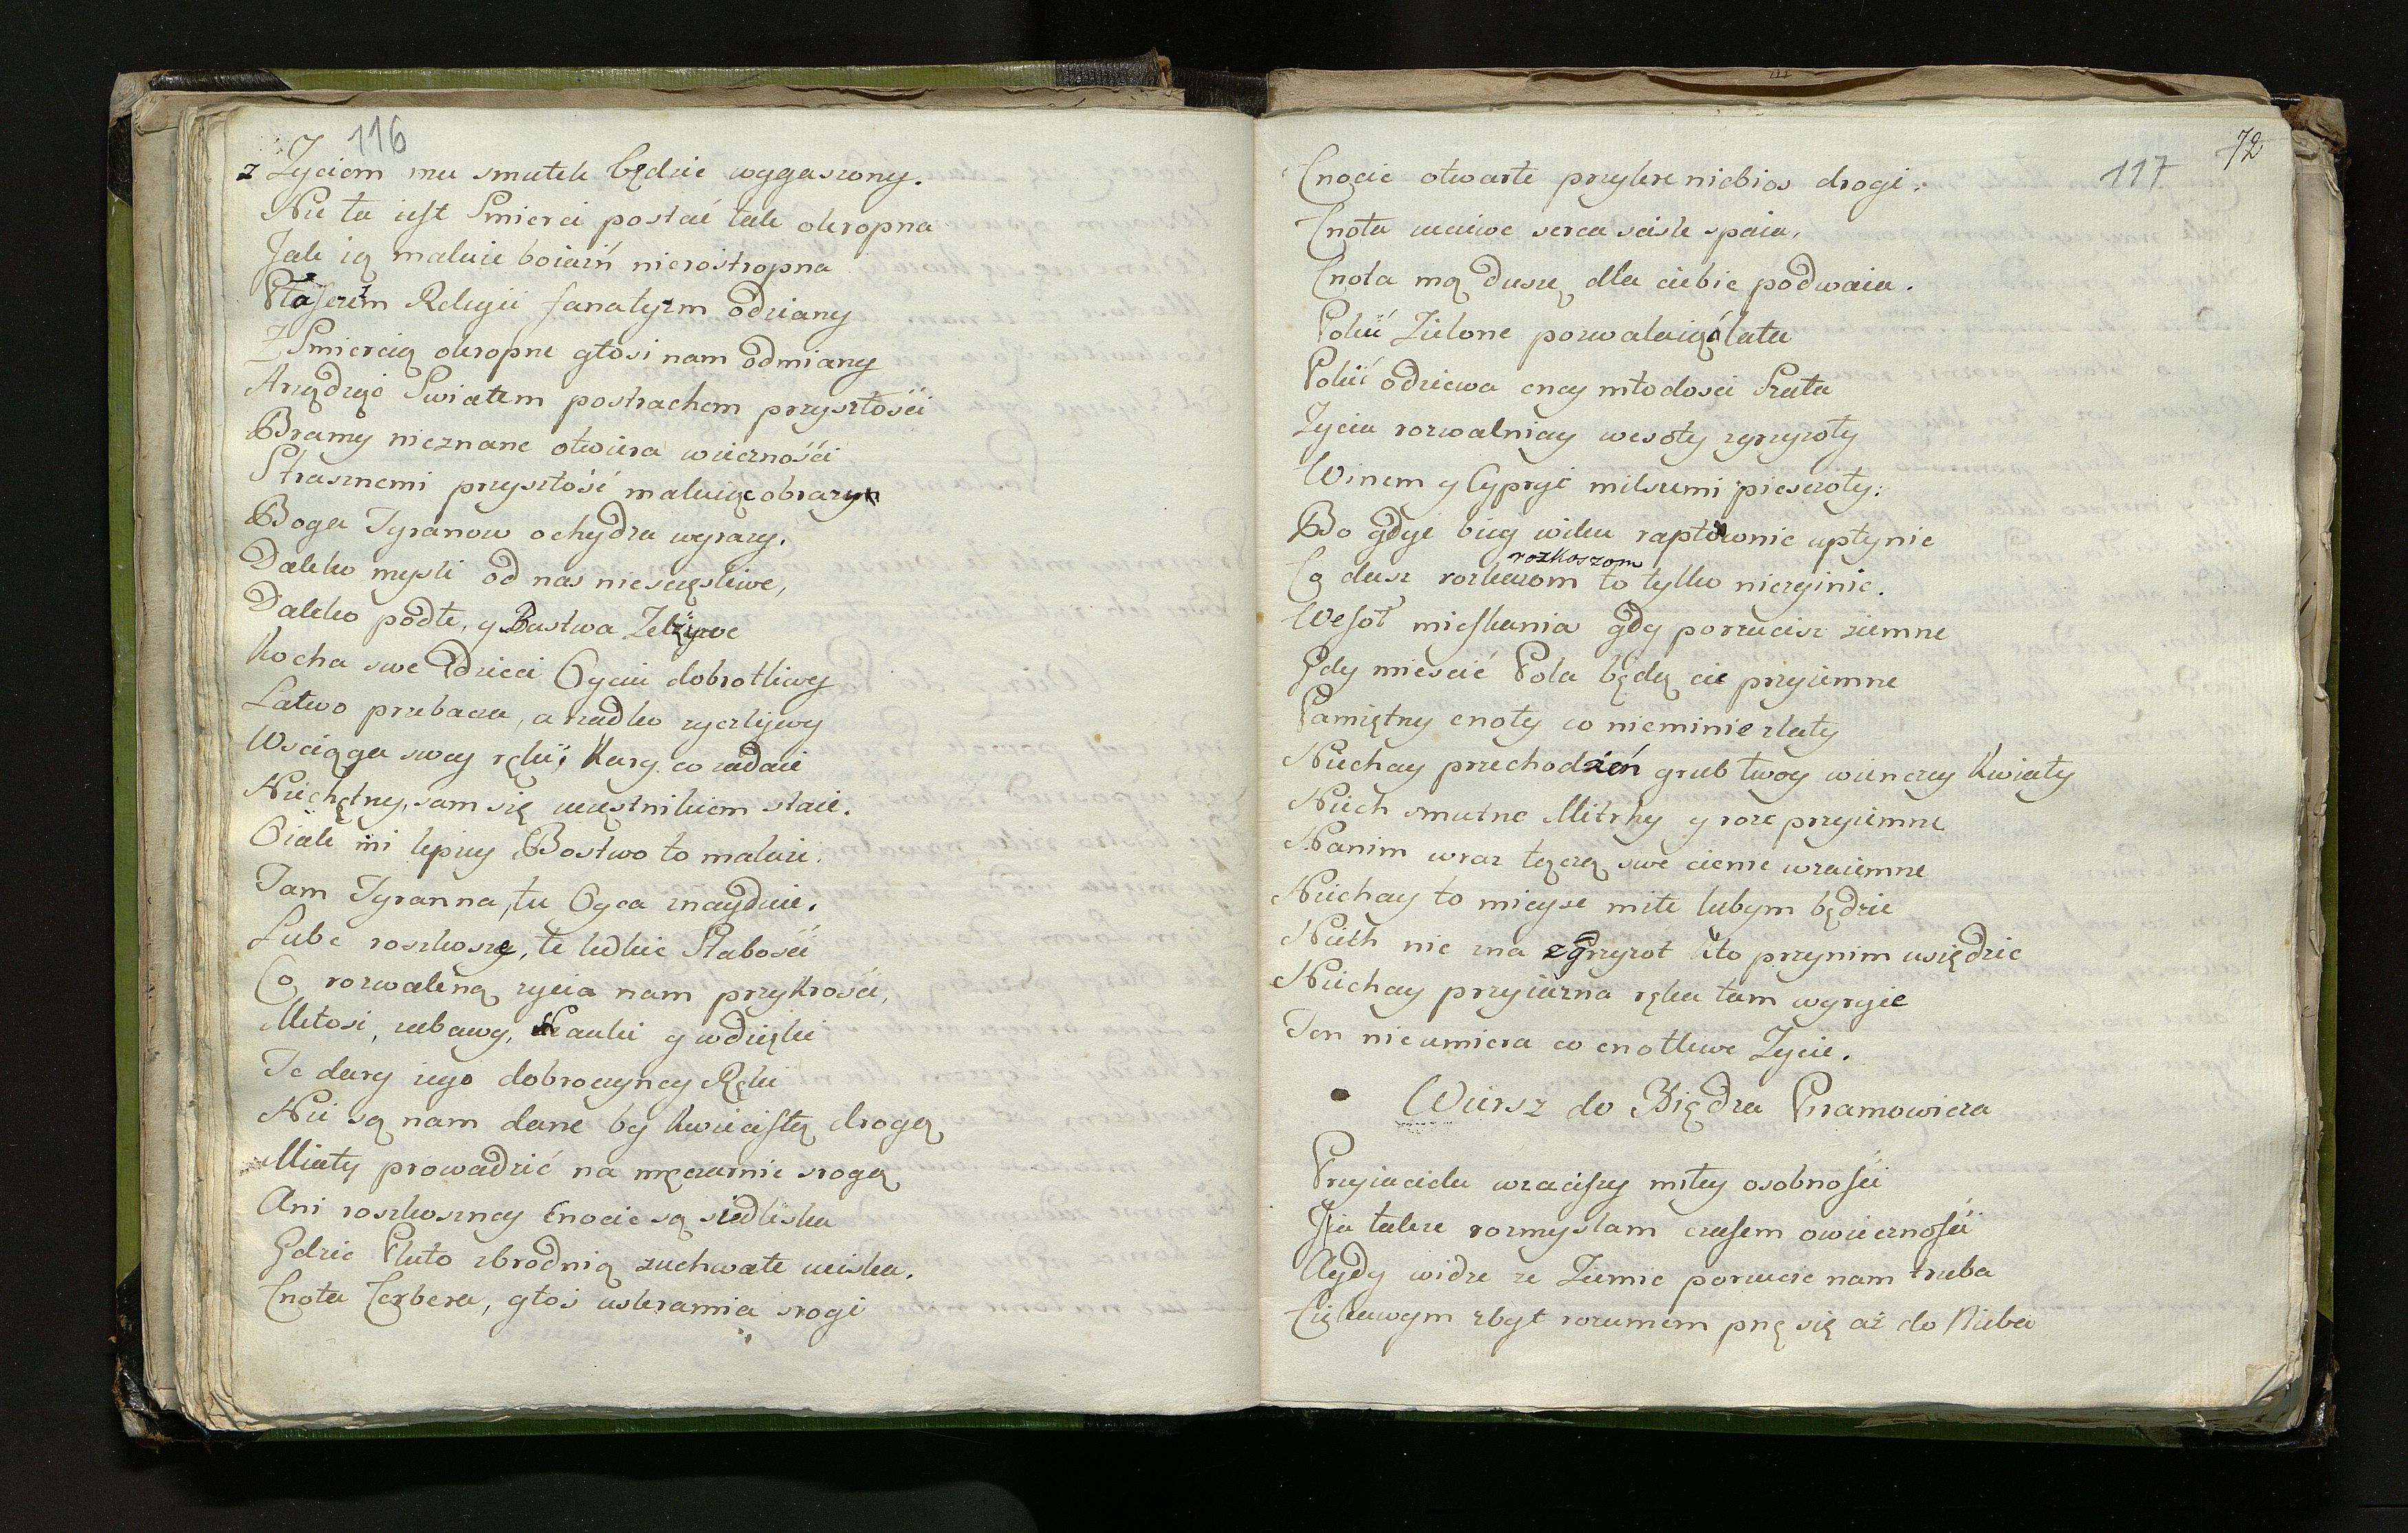 116
z Życiem mu smutek będzie wygaszony.
Nie ta iest Smierci postać tak okropna
Jak ią maluie boiaźń nierostropna
Płaszczem Religii fanatyzm odziany
Z Smiercią okropne głosi nam odmiany
A rządząc Swiatem postrachem przyszłości
Bramy nieznane otwiera wieczności
Strasznemi przyszłość maluiąc obrazy
Boga Tyranow ochydza wyrazy.
Daleko mysli od nas niescęsliwe,
Daleko podłe, y Bostwa Zelżywe
Kocha swe dzieci Oyciec dobrotliwy
Latwo przebacza, a rzadko zyczliwy
Wsciąga swey ręki, Kary co zadaie
Niechętny, sam się uczęstnikiem staie.
O iak mi lepiey Bostwo to maluie.
Tam Tyranna, tu Oyca znayduie.
Lube roszkosze, te ludkie Słabości
Co rozwalną życia nam przykrości,
Miłość, zabawy, Nauki y wdzięki
Te dary iego dobroczynney Ręki
Nie są nam dane by kwiecistą drogą
Miały prowadzić na męczarnie srogą
Ani roszkoszney Cnocie są siedliska
Gdzie Pluto zbrodnią zuchwałe uciska.
Cnota Cerbera, głos uskramia srogi
72
117
Cnocie otwarte przykre niebios drogi.
Cnota uczciwe serca scisle spaia,
Cnota mą duszę dla ciebie podwaia.
Pokić Zielone pozwalaią lata
Pokić odziewa cney młodosci Szata
Zycia rozwalniay wesoły zgryzoty
Winem y Cypryi milszemi piesczoty:
Bo gdye bieg wieku rapłownie upłynie
rozkoszom
Co dasz rozkazom to tylko niezginie.
Wesoł mieszkania gdy porzucisz ziemne
Gdy miescić Pola będą cie przyiemne
Pamiętny cnoty co nieminie zlaty
Niechay przechodzień grub twoy wienczy Kwiaty
Niech smutne Mitrhy y roze przyiemne
Nanim wraz łączą swe cienie wzaiemne
Niechay to mieyse miłe lubym będzie
Niech nie zna zgryzot kto przynim usiędzie
Niechay przyiazna ręka tam wyryie
Ten nieumiera co cnotliwe Zycie.
Wiersz do Xiędza Piramowicza
Przyiacielu wzaciszy miłey osobnosci
Jia także rozmyslam czasem owiecznosci
A gdy widze ze Ziemie porzucic nam trzeba
Ciekawym zbyt rozumem pnę się aż do Nieba